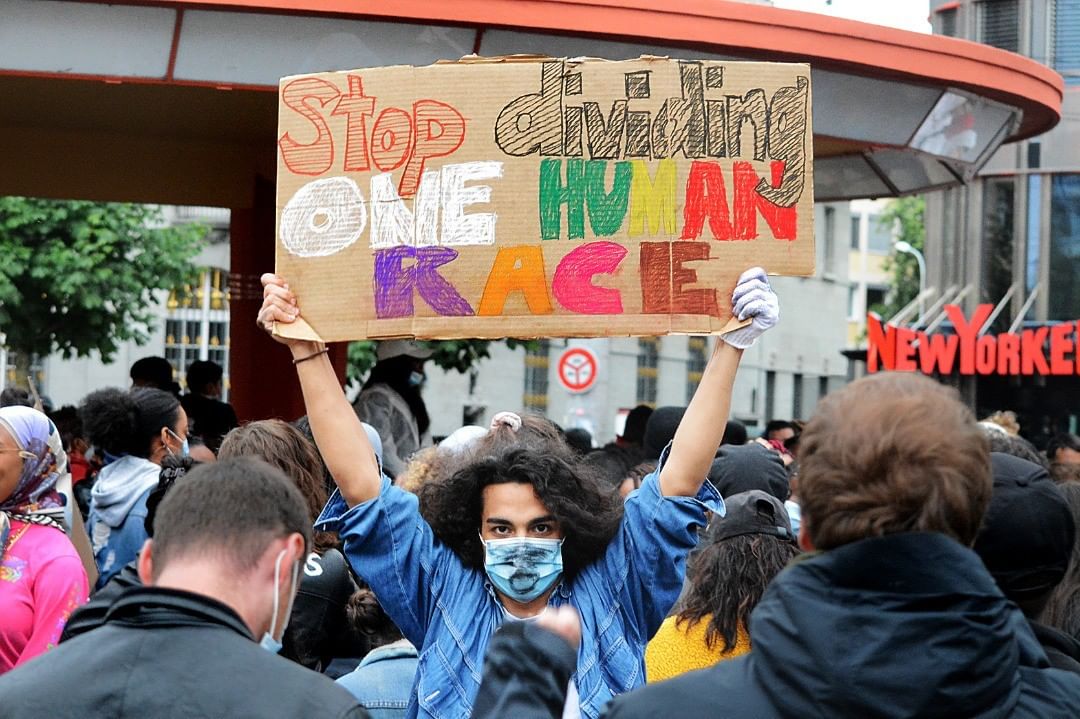 Stop dividing
ONE HUMAN
RACE
NEWYORKE
S